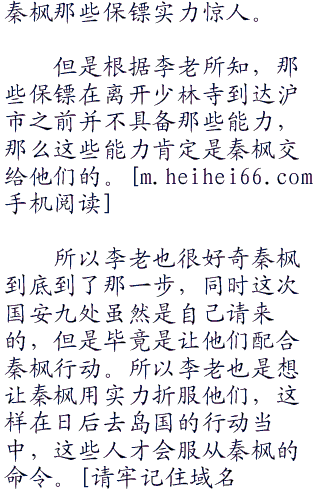 秦枫那些保镖实力惊人。
但是根据李老所知，那
些保镖在离开少林寺到达沪
市之前并不具备那些能力，
那么这些能力肯定是秦枫交
给他们的。[m.heihei66.com
手机阅读]
所以李老也很好奇秦枫
到底到了那一步，同时这次
国安九处虽然是自己请来
的，但是毕竟是让他们配合
秦枫行动。所以李老也是想
让秦枫用实力折服他们，这
样在日后去岛国的行动当
中，这些人才会服从秦枫的
命令。[请牢记住域名